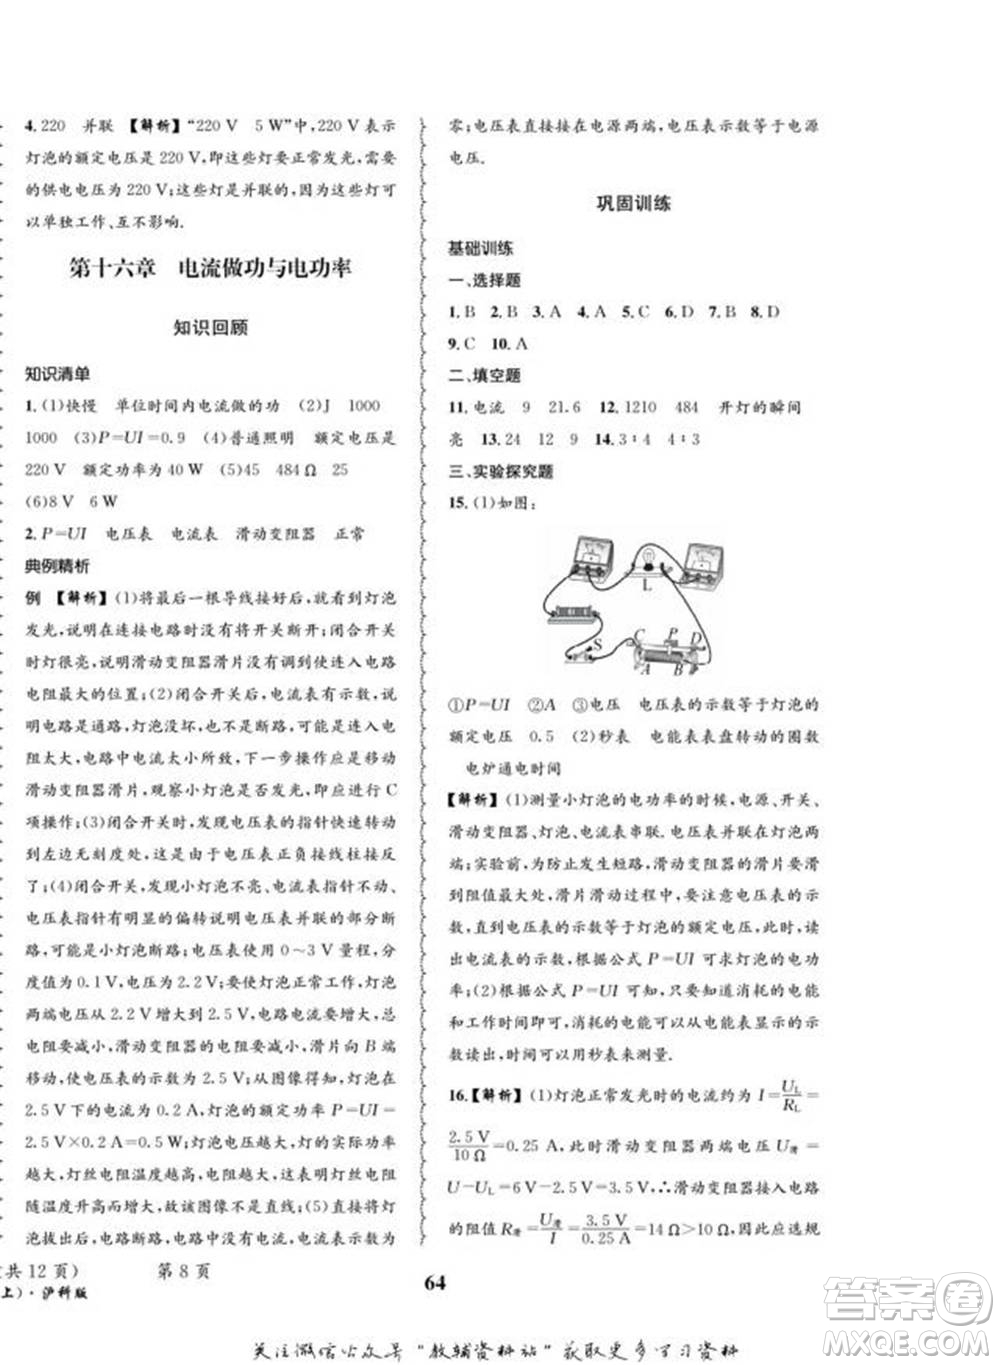 4. 220　并联　【解析】“220 V　5 W”中,220 V 表示
灯泡的额定电压是 220 V,即这些灯要正常发光,需要
的供电电压为 220 V;这些灯是并联的,其中一个灯可
以单独工作、互不影响.
第十六章　电流做功与电功率
知识回顾
知识清单
1. (1)快慢　单位时间内电流做的功　(2)J　1000
1000　(3)P=UI=0.9　(4)普通照明　额定电压是
220 V　额定功率为 40 W　(5)45　484 Ω　25
(6)8 V　6 W
2. P=UI　电压表　电流表　滑动变阻器　正常
典例精析
例　【解析】(1)将最后一根导线接好后,就看到灯泡
发光,说明在连接电路时没有将开关断开;闭合开关
时灯很亮,说明滑动变阻器滑片没有调到接入电路
电阻最大的位置;(2)闭合开关后,电流表有示数,说
明电路是通路,灯泡没坏,也不是断路,可能是连入电
阻太大,电路中电流太小所致,下一步操作可移动滑
动变阻器滑片,观察小灯泡是否发光,即应进行 C
项操作;(3)闭合开关时,发现电压表的指针快速转动
到左边无刻度处,这是由于电压表正负接线柱接反
了;(4)闭合开关,小灯泡不亮,电流表指针不动、电
压表指针有明显的偏转说明电压表并联的部分断
路,可能是小灯泡断路;电压表使用 0～3 V 量程,分
度值为 0.1 V,电压为 2.2 V;要使小灯泡正常工作,灯泡
两端电压要从 2.2 V 增大到 2.5 V,电路电流要增大,总
电阻要减小,滑动变阻器的电阻要减小,滑片向 B 端
移动,使电压表的示数为 2.5 V;由图像知,灯泡在
2.5 V 下的电流为 0.2 A,灯泡的额定功率 P=UI=
2.5 V×0.2 A=0.5 W;灯泡电压越大,灯的实际功率
越大,灯丝电阻温度越高,电阻越大,因此灯丝电阻随
温度升高而增大,故该图像是曲线;(5)实验中,若灯
泡被烧坏,电路断路,电路中电流为零,电流表示数为
零;电压表直接接在电源两端,电压表示数等于电源
电压.
巩固训练
基础训练
一、选择题
1. B　2. B　3. A　4. A　5. C　6. D　7. B　8. D
9. C　10. A
二、填空题
11. 电流　9　21.6　12. 1210　484　开灯的瞬间
亮　13. 24　12　9　14. 3∶4　4∶3
三、实验探究题
15. (1)如图:
L
S
C P D
A B
①P=UI　②A　③电压　电压表的示数等于灯泡的
额定电压　0.5　(2)秒表　电能表表盘转动的圈数
电炉通电时间
【解析】(1)测量小灯泡的电功率的时候,电源、开关、
滑动变阻器、灯泡、电流表串联.电压表并联在灯泡两
端;实验前,为防止发生短路,滑动变阻器的滑片要滑
到阻值最大处,滑片滑动过程中,要注意电压表的示
数,当电压表的示数等于灯泡的额定电压时,停止,读
出电流表的示数,根据公式 P=UI 可求灯泡的电功
率;(2)根据公式 P=UI 可知,只要知道消耗的电能
和工作时间即可,消耗的电能可以由电能表显示的示
数读出,时间可以用秒表来测量.
16.【解析】(1)灯泡正常发光时的电流约为 I=U_L/R_L=
2.5 V/10 Ω=0.25 A,此时滑动变阻器两端电压 U滑=
U−U_L=6 V−2.5 V=3.5 V,∴滑动变阻器接入电路
的阻值 R滑=U滑/I=3.5 V/0.25 A=14 Ω>10 Ω,因此应选规
共 12 页)　第 8 页
上)·沪科版
64
关注微信公众号“教辅资料站”获取更多学习资料
答案圈
MXQE.COM